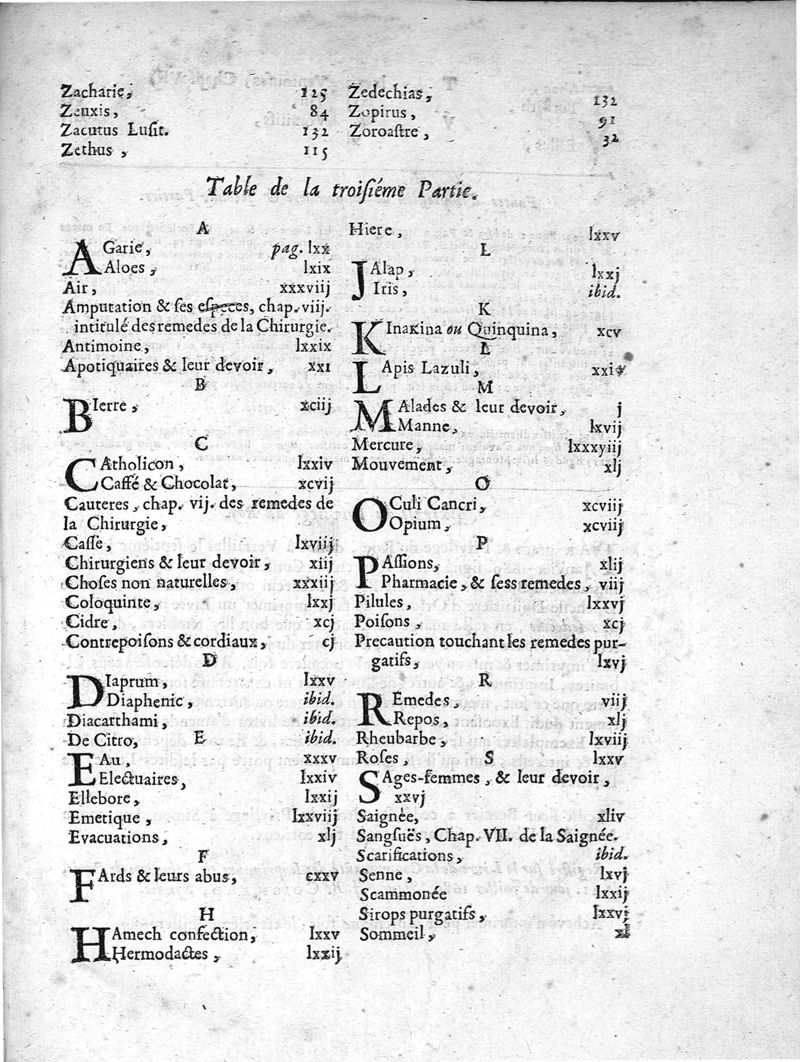 Zacharie, 125
Zeuxis, 84
Zacutus Lusit. 132
Zethus, 115
Zedechias, 132
Zopirus, 91
Zoroastre, 32
Table de la troisiéme Partie.
A
AGarie, pag. lxx
Aloes, lxix
Air, xxxviij
Amputation & ses especes, chap. viij.
intitulé des remedes de la Chirurgie.
Antimoine, lxxix
Apotiquaires & leur devoir, xxi
B
BIerre, xciij
C
CAtholicon, lxxiv
Caffé & Chocolat, xcvij
Cauteres, chap. vij. des remedes de
la Chirurgie,
Casse, lxviij
Chirurgiens & leur devoir, xiij
Choses non naturelles, xxxiij
Coloquinte, lxxj
Cidre, xcj
Contrepoisons & cordiaux, cj
D
DIaprum, lxxv
Diaphenic, ibid.
Diacarthami, ibid.
De Citro, ibid.
E
EAu xxxv
Electuaires, lxxiv
Ellebore, lxxij
Emetique, lxxviij
Evacuations, xlj
F
FArds & leurs abus, cxxv
H
HAmech confection, lxxv
Hermodactes, lxxij
Hiere, lxxv
L
JAlap, lxxj
Iris, ibid.
K
KInakina ou Quinquina, xcv
L
LApis Lazuli,
M
MAlades & leur devoir, j
Manne, lxvij
Mercure, lxxxyiij
Mouvement, xlj
O
OCuli Cancri, xcviij
Opium, xcviij
P
PAssions, xlij
Pharmacie, & sess remedes, viij
Pilules, lxxvj
Poisons, xcj
Precaution touchant les remedes pur-
gatifs, lxvj
R
REmedes, viij
Repos, xlj
Rheubarbe, lxviij
Roses, lxxv
S
SAges-femmes, & leur devoir,
xxvj
Saignée, xliv
Sangsuës, Chap. VII. de la Saignée.
Scarifications, ibid.
Senne, lxvj
Scammonée lxxij
Sirops purgatifs, lxxvj
Sommeil, xl